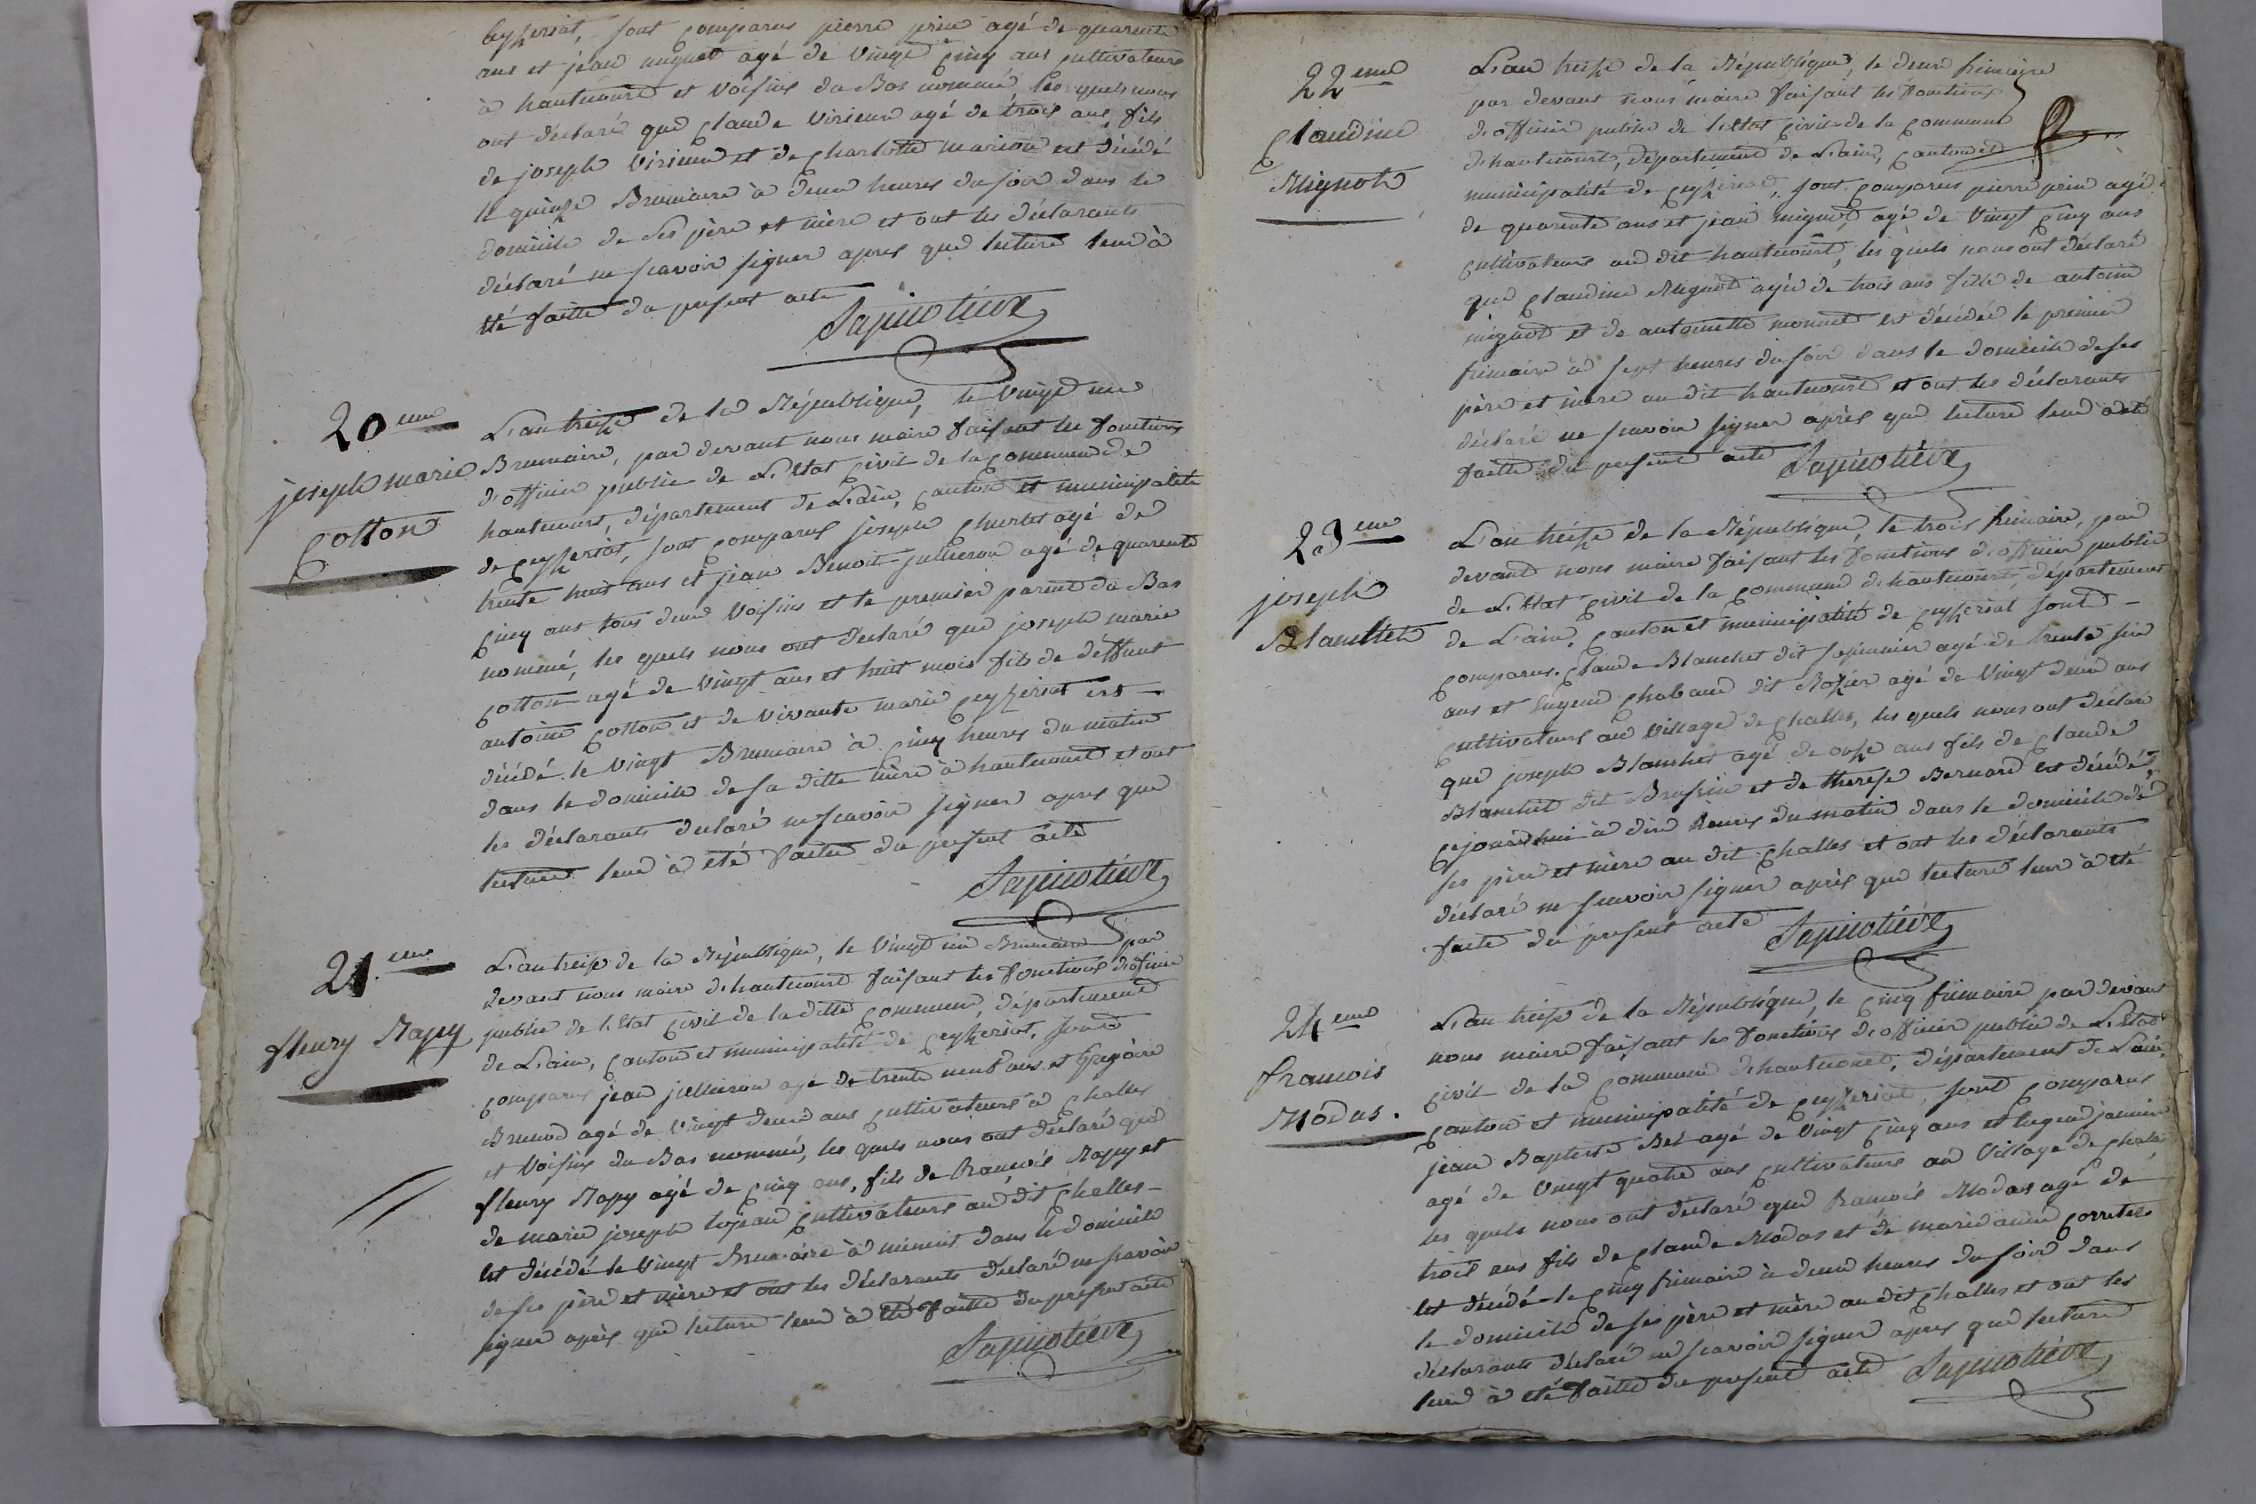 ceyzeriat, sont comparus pierre prin agé de quarente
ans et jean mignot agé de vingt cinq ans cultivateurs
à hautecourt et voisins du Bas nommé, les quels nous
ont déclaré que Claude Virieux agé de trois ans fils
de joseph Virieux et de Charlotte marion est décédé
le quinze Brumaire à deux heures du soir dans le
domicile de ses père et mère et ont les déclarants
déclaré ne scavoir signer apres que lecture leur à
été faitte du present acte
20eme
joseph marie
Cotton
L'an treize de la République, le vingt un
Brumaire, par devant nous maire faisant les fonctions
d'officier public de L'Etat Civil de la commune de
hautecourt, département de L'ain, canton et municipalité
de ceyzeriat, sont comparus joseph Churlet agé de
trente huit ans et jean Benoit jullieron agé de quarente
cinq ans tous deux voisins et le premier parent du Bas
nommé, les quels nous ont déclaré que joseph marie
Cotton agé de vingt ans et huit mois fils de deffunt
antoine Cotton et de vivante marie Ceyzeriat est
décédé le vingt Brumaire à cinq heures du matin
dans le domicile de sa ditte mère à hautecourt et ont
les déclarants declaré ne scavoir signer apres que
lecture leur à été faitte du present acte
21.eme
fleury Rapy
L'an treize de la République, le vingt un Brumaire par
devant nous maire de hautecourt faisant les fonctions d'officier
public de l'Etat Civil de la ditte commune, département
de L'ain, canton et municipalité de ceyzeriat, sont
comparus jean jullieron agé de trente neuf ans et Gregoire
Brunod agé de vingt deux ans cultivateurs à Challes
et voisins du Bas nommé, les quels nous ont déclaré que
fleury Rapy agé de cinq ans, fils de françois Rapy et
de marie joseph cultivateurs au dit Challes
est décédé le vingt Brumaire à minuit dans le domicile
de ses père et mère et ont les déclarants déclaré ne scavoir
signer après que lecture leur à été faitte du present acte
22eme
Claudine
Mignot
L'an treize de la République, le deux frimaire
par devant nous maire faisant les fonctions
d'officier public de l'Etat Civil de la commune
de hautecourt, département de L'ain, canton et
municipalité de ceyzeriat, sont comparus pierre prin agé
de quarente ans et jean mignot, agé de vingt cinq ans
cultivateurs au dit hautecourt, les quels nous ont déclaré
que Claudine Mignot agée de trois ans fille de antoine
mignot et de antoinette monnet est décédée le premier
frimaire à sept heures du soir dans le domicile de ses
père et mère au dit hautecourt et ont les déclarants
déclaré ne scavoir signer après que lecture leur a été
faitte du present acte
23eme
joseph
Blanchet
L'an treize de la République, le trois frimaire, par
devant nous maire faisant les fonctions d'officier public
de L'Etat Civil de la commune de hautecourt, département
de L'ain, canton et municipalité de ceyzeriat sont
comparus. Claude Blanchet dit agé de trente six
ans et Eugene Chabaud dit Rozier agé de vingt deux ans
cultivateurs au village de Challes, les quels nous ont déclaré
que joseph Blanchet agé de onze ans fils de Claude
Blanchet dit et de therese Bernard est décédé
cejourd'hui à dix heures du matin dans le domicile de
ses père et mère au dit Challes et ont les déclarants
déclaré ne scavoir signer après que lecture leur à été
faite du present acte
24eme
françois
Modas.
L'an treize de la République, le cinq frimaire par devant
nous maire faisant les fonctions d'officier public de L'Etat
civil de la commune de hautecourt, département de L'ain,
canton et municipalité de ceyzeriat, sont comparus
jean Baptiste Bel agé de vingt cinq ans et eugene
agé de vingt quatre ans cultivateurs au village de Challes
les quels nous ont déclaré que françois Modas agé de
trois ans fils de Claude Modas et de marie anne
est décédé le cinq frimaire à deux heures du soir dans
le domicile de ses père et mère au dit Challes et ont les
déclarants déclaré ne scavoir signer apres que lecture
leur à été faitte du present acte